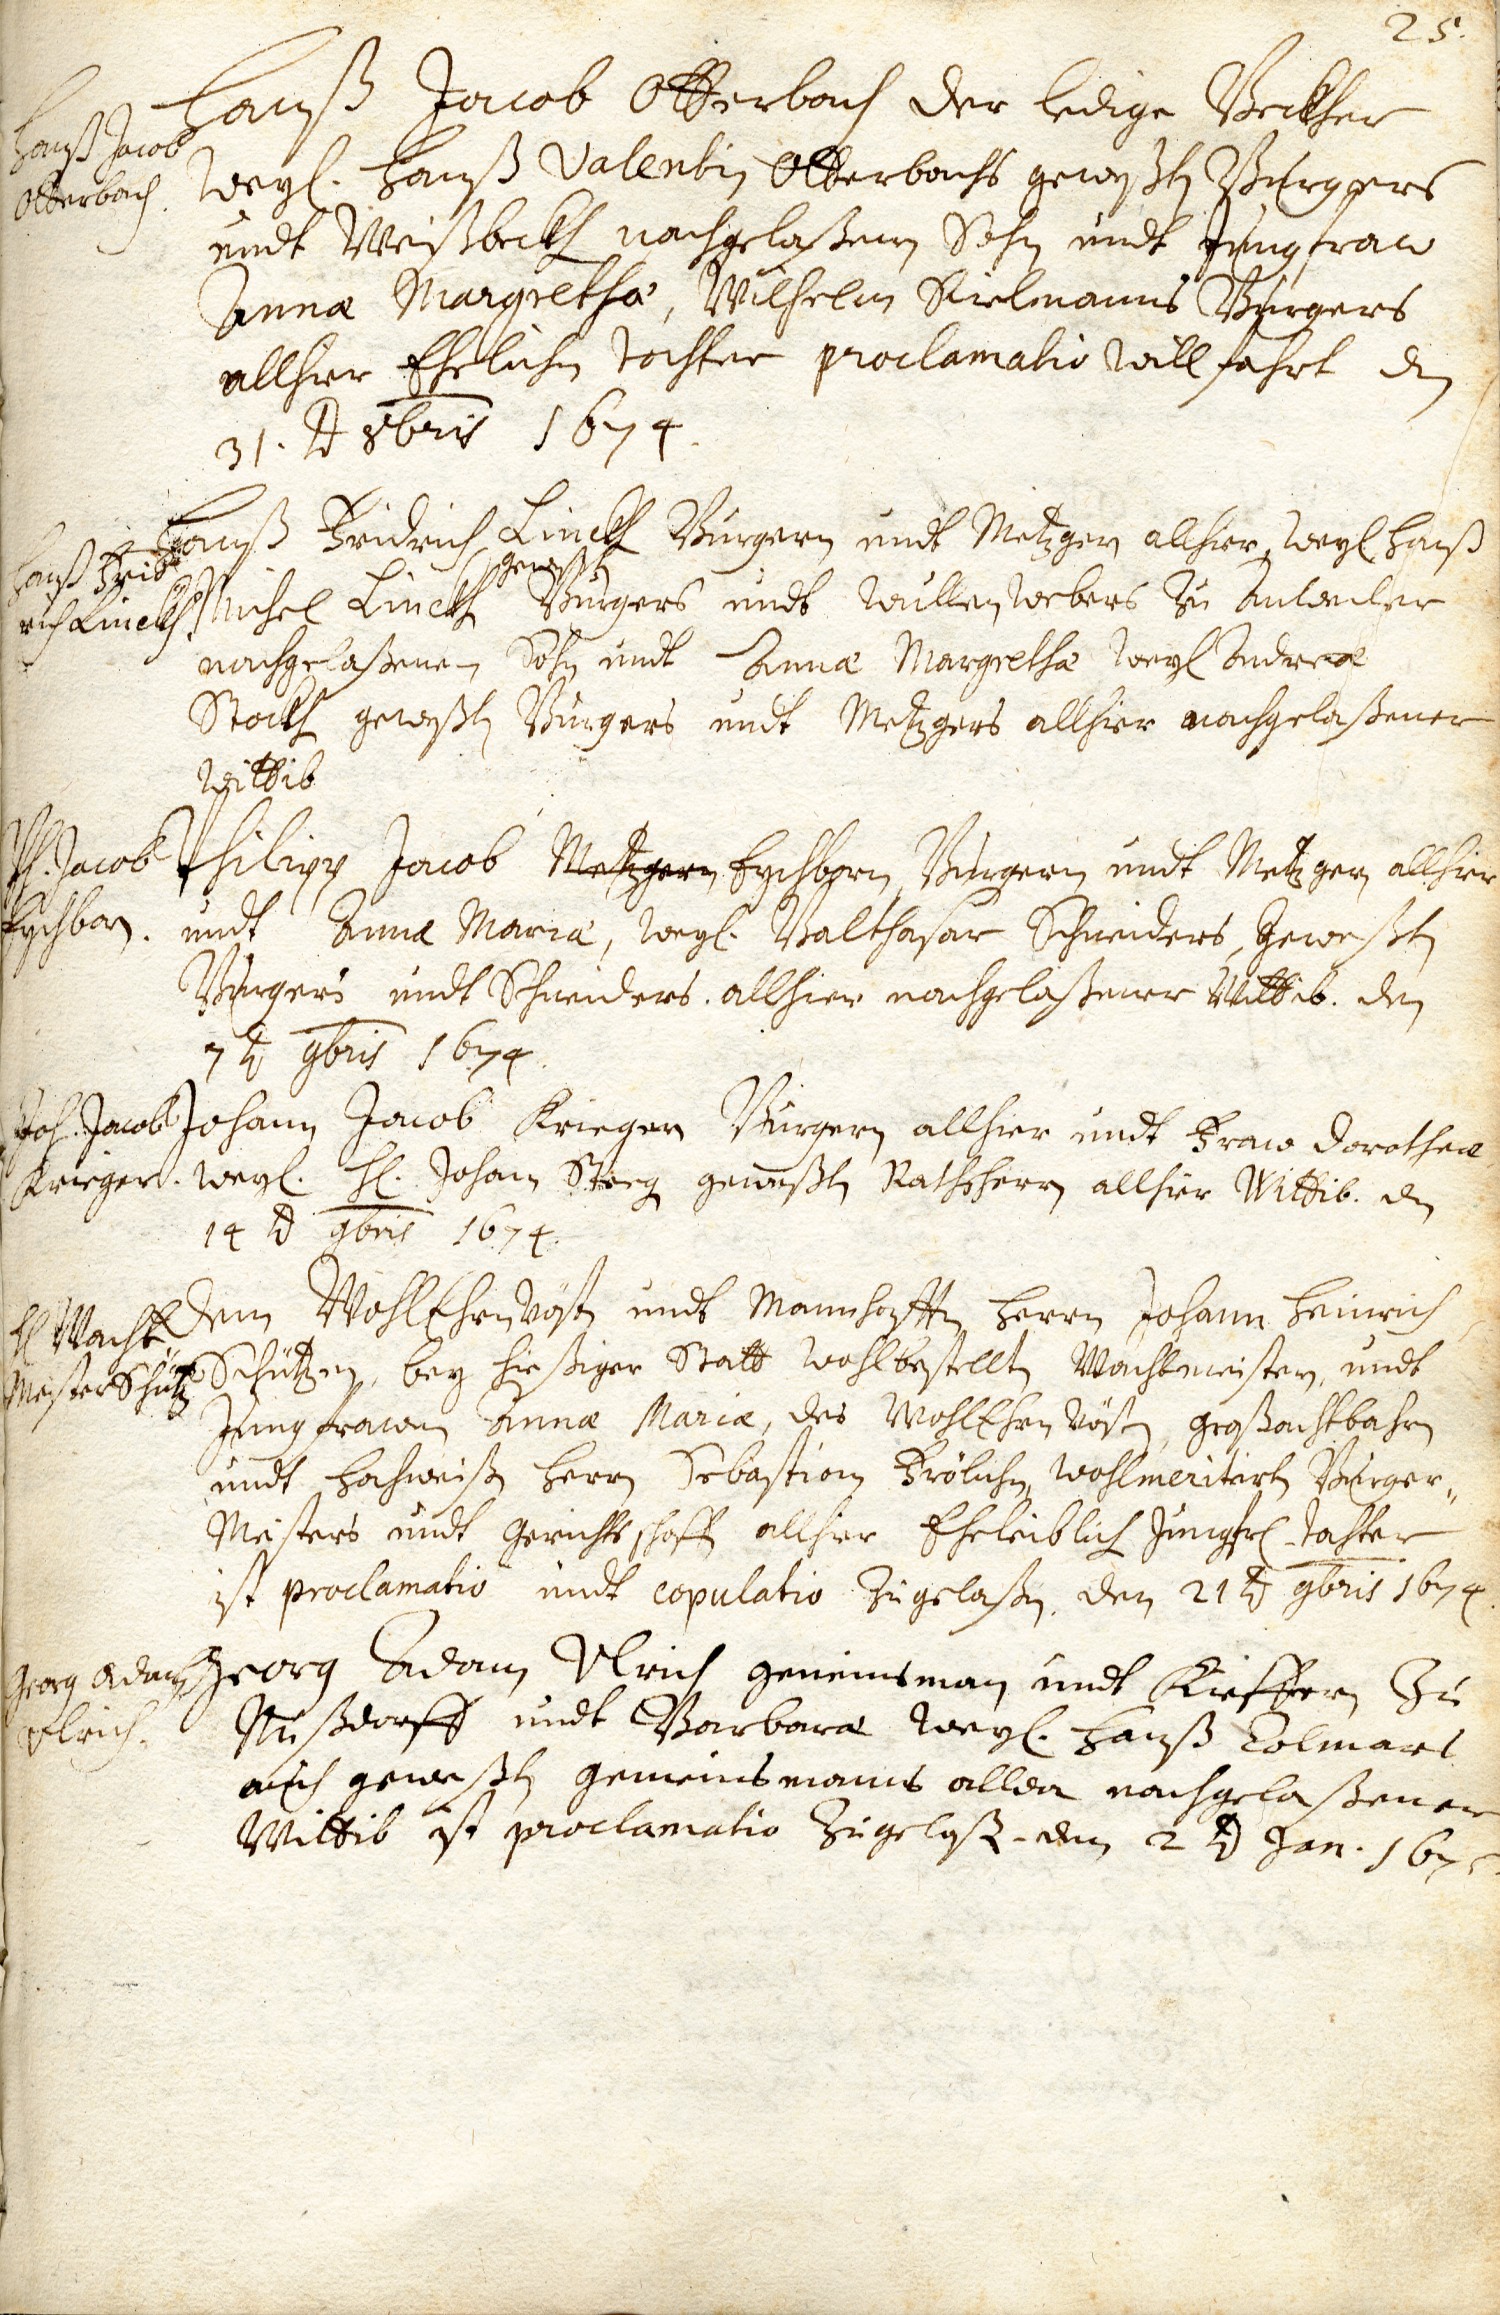 25.
Hanß Jacob
Otterbach.
Hanß Jacob Otterbach der ledige Beckher
weyl. Hanß Valentin Otterbachs geweßten Burgers
undt Weißbeckh nachgelaßenen Sohn undt Jungfraw
Annæ Margrethæ, Wilhelm Kielmanns Burgers
allhier Ehelichen tochter proclamatio willfahrt den
31. t 8bris 1674.
Hanß Frid
rich Linckh.
Hanß Fridrich Linckh Burgern undt Metzgern allhier, weyl Hanß
geweßt
Michel Linckh Burgers undt wullen webers zu Anweiler
nachgelaßenen Sohn undt Annæ Margrethæ weyl Andreæ
Stockh geweßten Burgers undt Metzgers allhier nachgelaßener
wittib
Ph. Jacob
Eychborn.
Philipp Jacob Metzgern Eychborn, Burgern undt Metzgern allhier
undt Annæ Mariæ, weyl. Balthasar Schneiders, geweßten
Burgers undt Schneiders allhier nachgelaßener Wittib. den
7 t 9bris 1674.
Joh. Jacob
Krieger.
Johann Jacob Krieger Burgern allhier undt Fraw Dorotheæ
weyl. H. Johan geweßten Rathsherrn allhier Wittib. den
14 t 9bris 1674.
H Wacht
Meister Schütz
Dem WohlEhrnvösten undt Mannhafften Herrn Johann Heinrich
Schützen, bey hießiger Statt wohlbestellten Wachtmeistern, undt
Jungfrawen Annæ Mariæ, des WohlEhrnvösten, großachtbahren
undt hochweißen Herrn Sebastian Frölichen, wohlmeritirten Burger„
Meisters undt Gerichtsschoff allhier Eheleiblich Jungfrl. tochter
ist proclamatio undt copulatio zugelaßen, den 21 t 9bris 1674.
Georg Adam
Ulrich.
Georg Adam Ulrich gemeinsman undt Kieffern zu
Nußdorff undt Barbaræ weyl. Hanß Colmars
auch geweßten gemeinsmanns allda nachgelaßener
Wittib ist proclamatio zugelaß. den 2 t Jan. 167